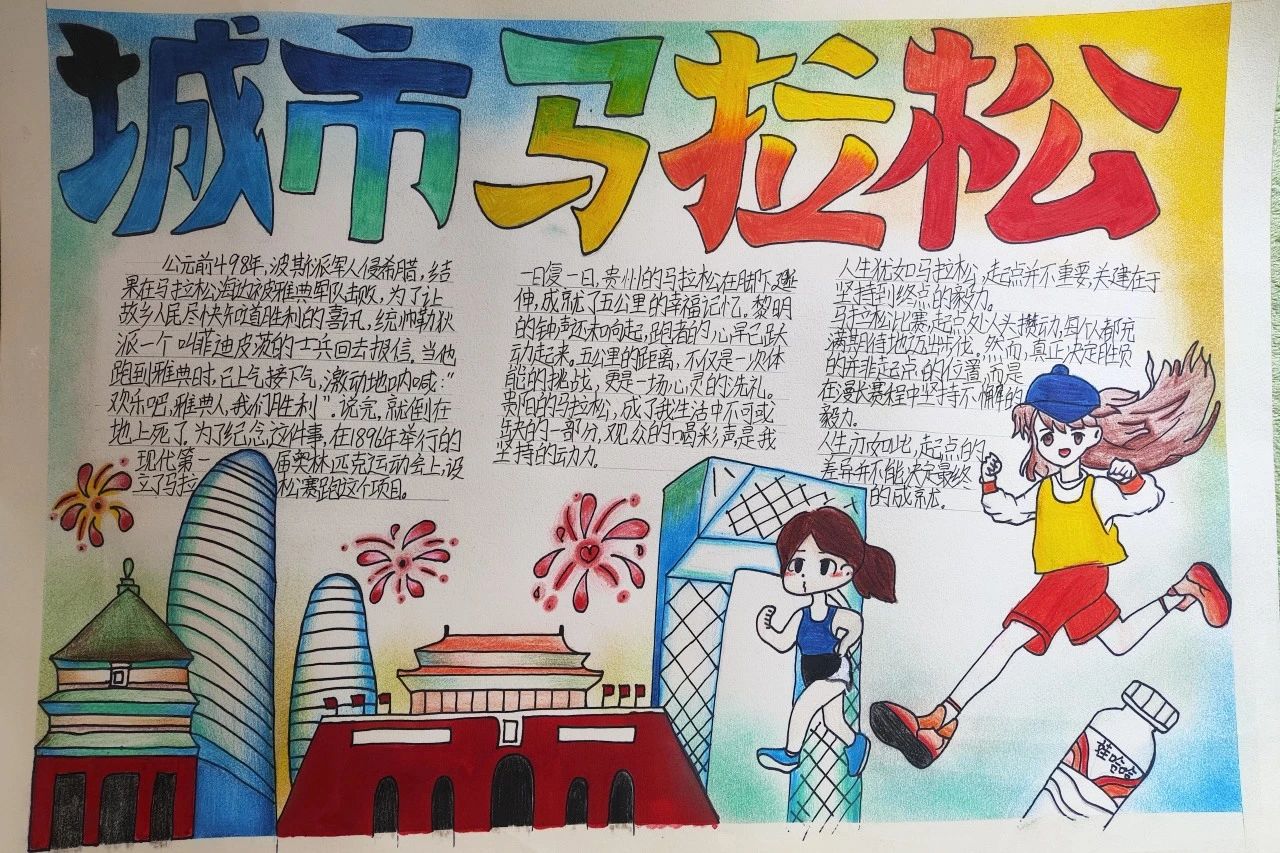 城市马拉松
公元前498年,波斯派军人侵希腊,结
果在马拉松海边被雅典军队击败,为了让
故乡人民尽快知道胜利的喜讯,统帅勒狄
派一个叫菲迪皮茨的士兵回去报信。当他
跑到雅典时,已上气接下气,激动地呐喊:“
欢乐吧,雅典人,我们胜利”。说完,就倒在
地上死了。为了纪念这件事,在1896年举行的
现代第一届奥林匹克运动会上,设
立了马拉松赛跑这个项目。
一日复一日,贵州的马拉松在脚下延
伸,成就了五公里的幸福记忆。黎明
的钟声还未响起,跑者的心早已跃
动起来。五公里的距离,不仅是一次体
能的挑战,更是一场心灵的洗礼。
贵阳的马拉松,成了我生活中不可或
缺的一部分,观众的喝彩声是我
坚持的动力。
人生犹如马拉松,起点并不重要,关建在于
坚持到终点的毅力。
马拉松比赛,起点处人头攒动,每个人都充
满期待地迈出步伐。然而,真正决定胜负
的并非起点的位置,而是
在漫长赛程中坚持不懈的
毅力。
人生亦如此,起点的
差异并不能决定最终
的成就。
娃哈哈